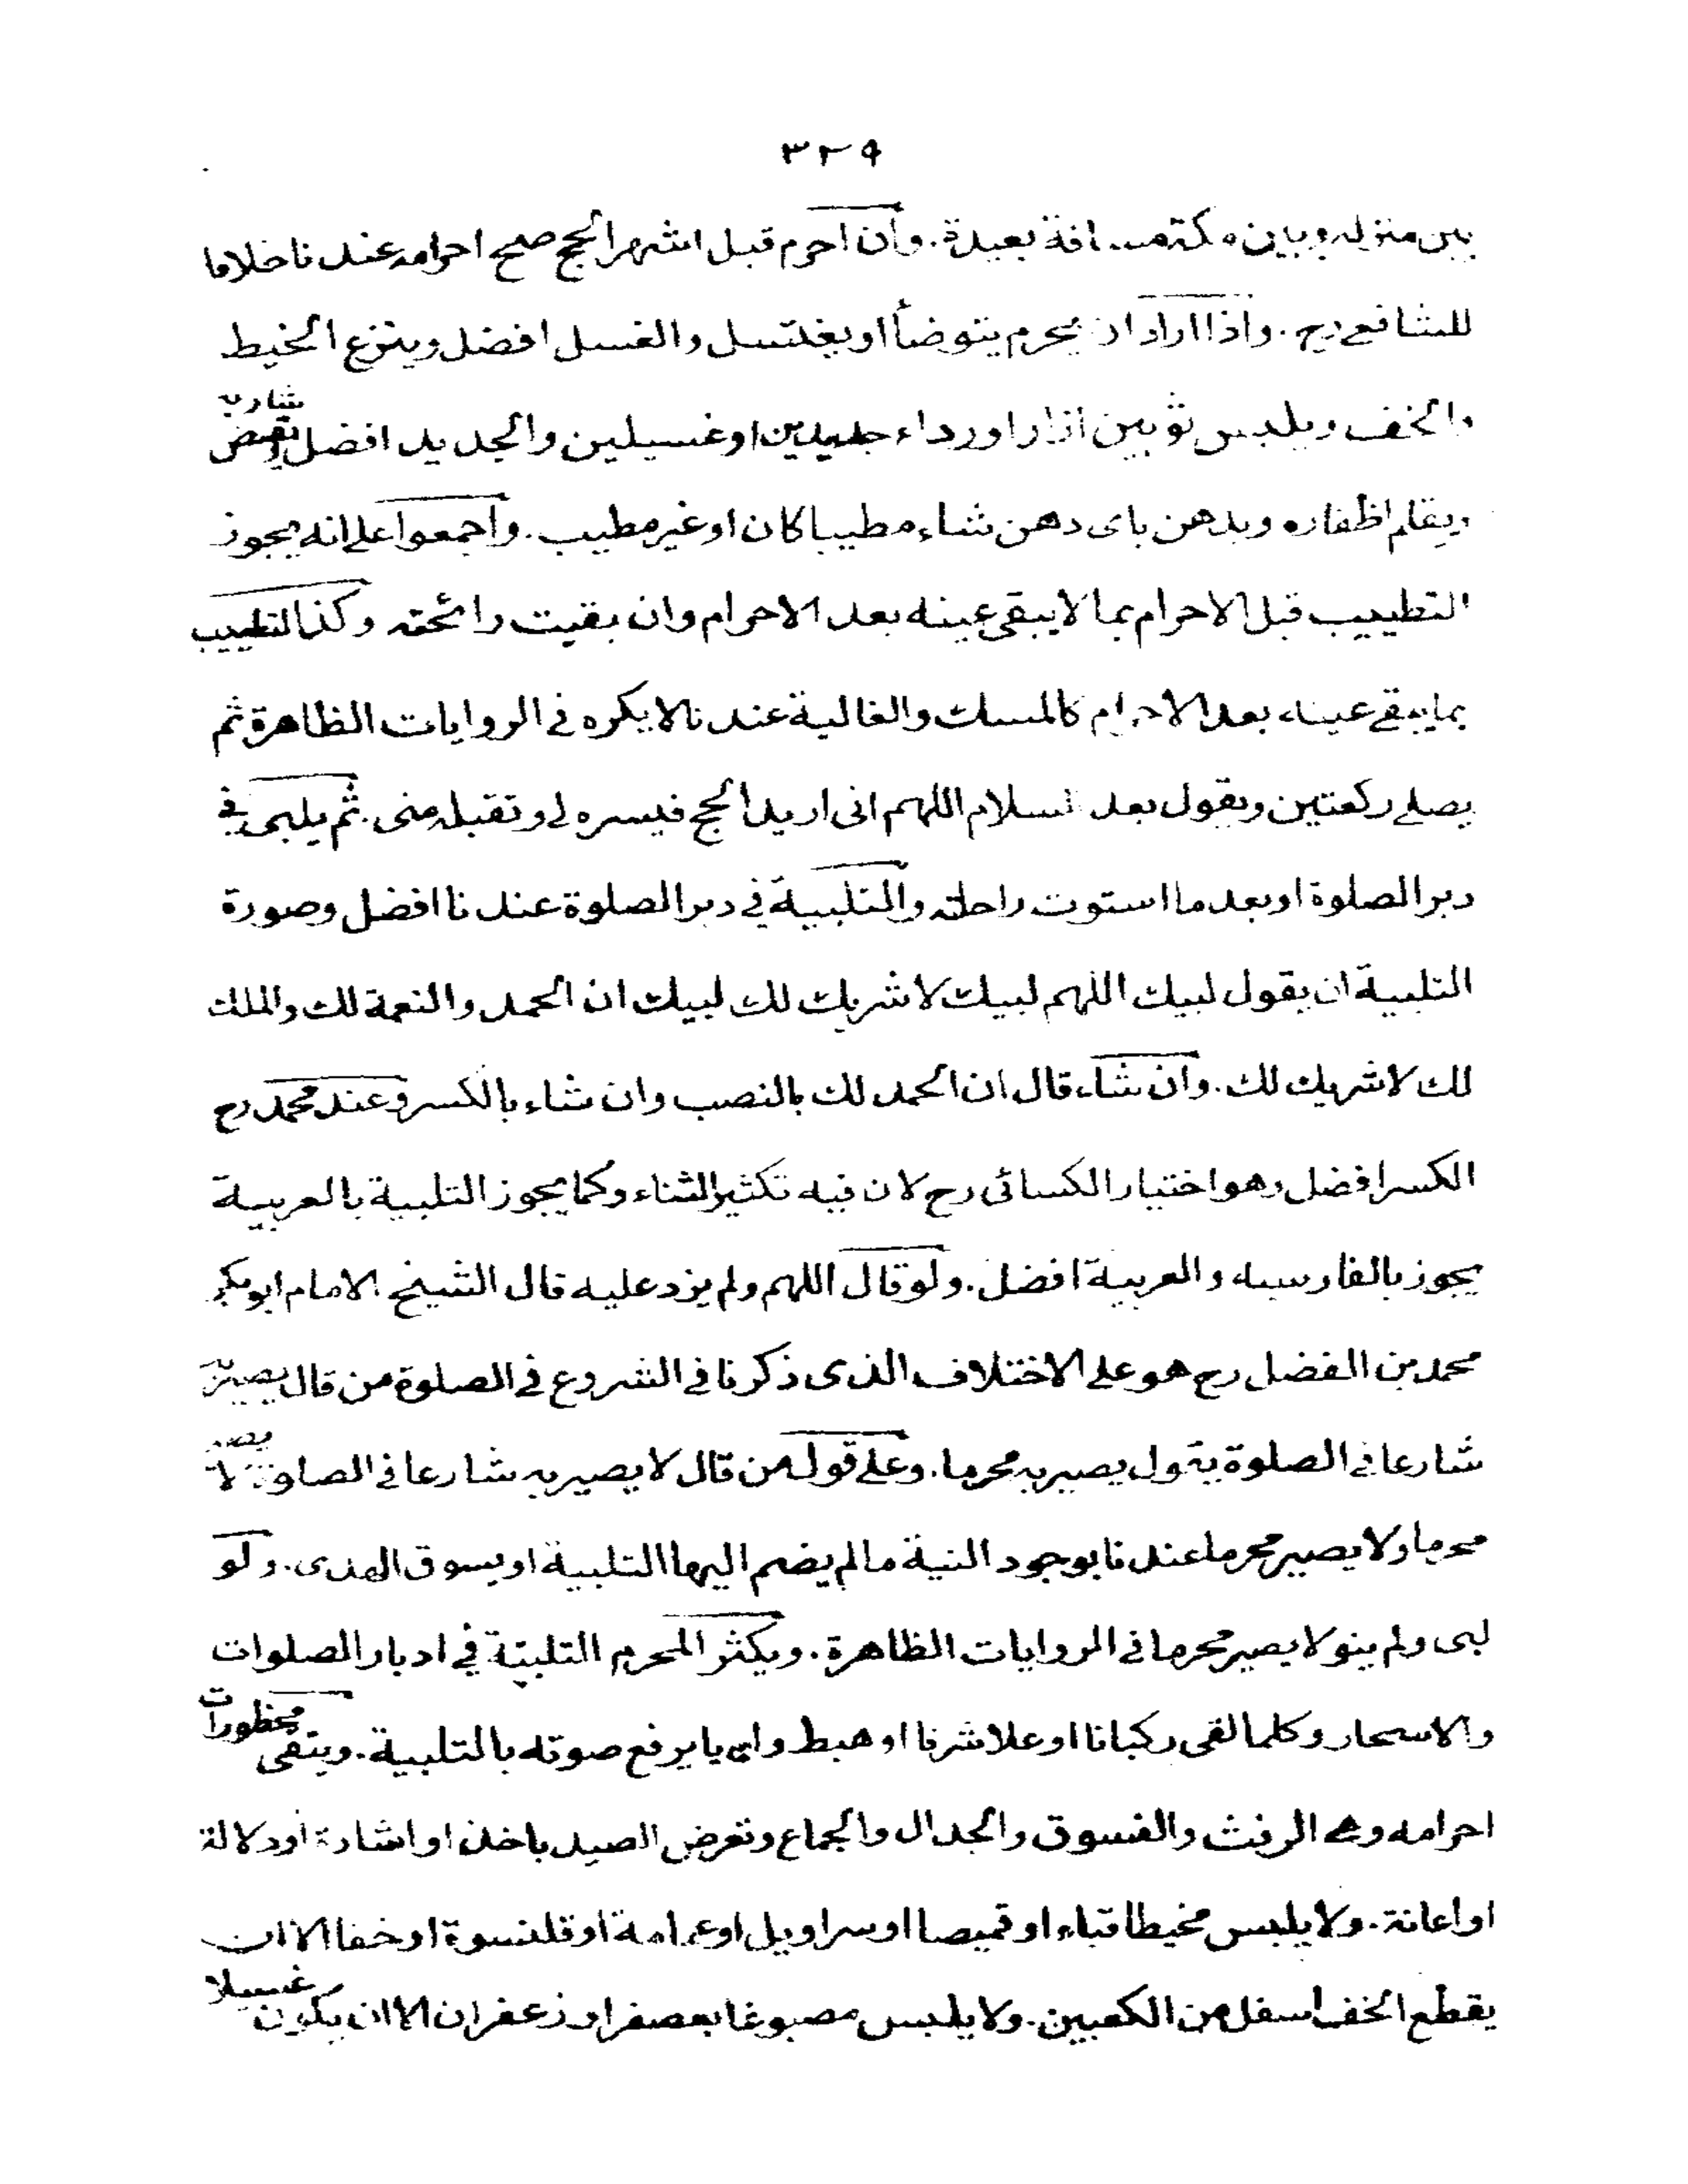 ٣٢٩
بين منزله وبين مكة مسافة بعيدة. وان احرم قبل اشهر الحج صح احرامه عندنا خلافا
للشافعي رح. واذا اراد ان يحرم يتوضأ او يغتسل والغسل افضل وينزع الخيط
والخف ويلبس ثوبين ازارا ورداء جديدين او غسيلين والجديد افضل ويقص شاربه
ويقلم اظفاره ويدهن باى دهن شاء مطيبا كان او غير مطيب. واجمعوا على انه يجوز
التطييب قبل الاحرام بما لا يبقى عينه بعد الاحرام وان بقيت رائحته وكذا التطييب
بما يبقى عينه بعد الاحرام كالمسك والغالية عندنا لا يكره في الروايات الظاهرة ثم
يصلے ركعتين ويقول بعد السلام اللهم انى اريد الحج فيسره لى وتقبله منى. ثم يلبى في
دبر الصلوة او بعد ما استوت راحلته والتلبية في دبر الصلوة عندنا افضل وصورة
التلبية ان يقول لبيك اللهم لبيك لا شريك لك لبيك ان الحمد والنعمة لك والملك
لك لا شريك لك. وان شاء قال ان الحمد لك بالنصب وان شاء بالكسر وعند محمد رح
الكسر افضل وهو اختيار الكسائى رح لان فيه تكثير الثناء وكما يجوز التلبية بالعربية
يجوز بالفارسية والعربية افضل. ولو قال اللهم ولم يزد عليه قال الشيخ الامام ابو بكر
محمد بن الفضل رح هو على الاختلاف الذى ذكرنا في الشروع في الصلوة من قال يصير به
شارعا في الصلوة يقول يصير به محرما. وعلى قول من قال لا يصير به شارعا في الصلوة لا يصير
محرما ولا يصير محرما عندنا بوجود النية ما لم يضم اليها التلبية او يسوق الهدى. ولو
لبى ولم ينو لا يصير محرما في الروايات الظاهرة. ويكثر المحرم التلبية في ادبار الصلوات
والاسحار وكلما لقى ركبانا او علا شرفا او هبط واديا يرفع صوته بالتلبية. ويتقى محظورات
احرامه وهے الرفث والفسوق والجدال والجماع وتعرض الصيد باخذ او اشارة او دلالة
او اعانة. ولا يلبس مخيطا قباء او قميصا او سراويل او عمامة او قلنسوة او خفا الا ان
يقطع الخف اسفل من الكعبين. ولا يلبس مصبوغا بعصفر او زعفران الا ان يكون غسيلا